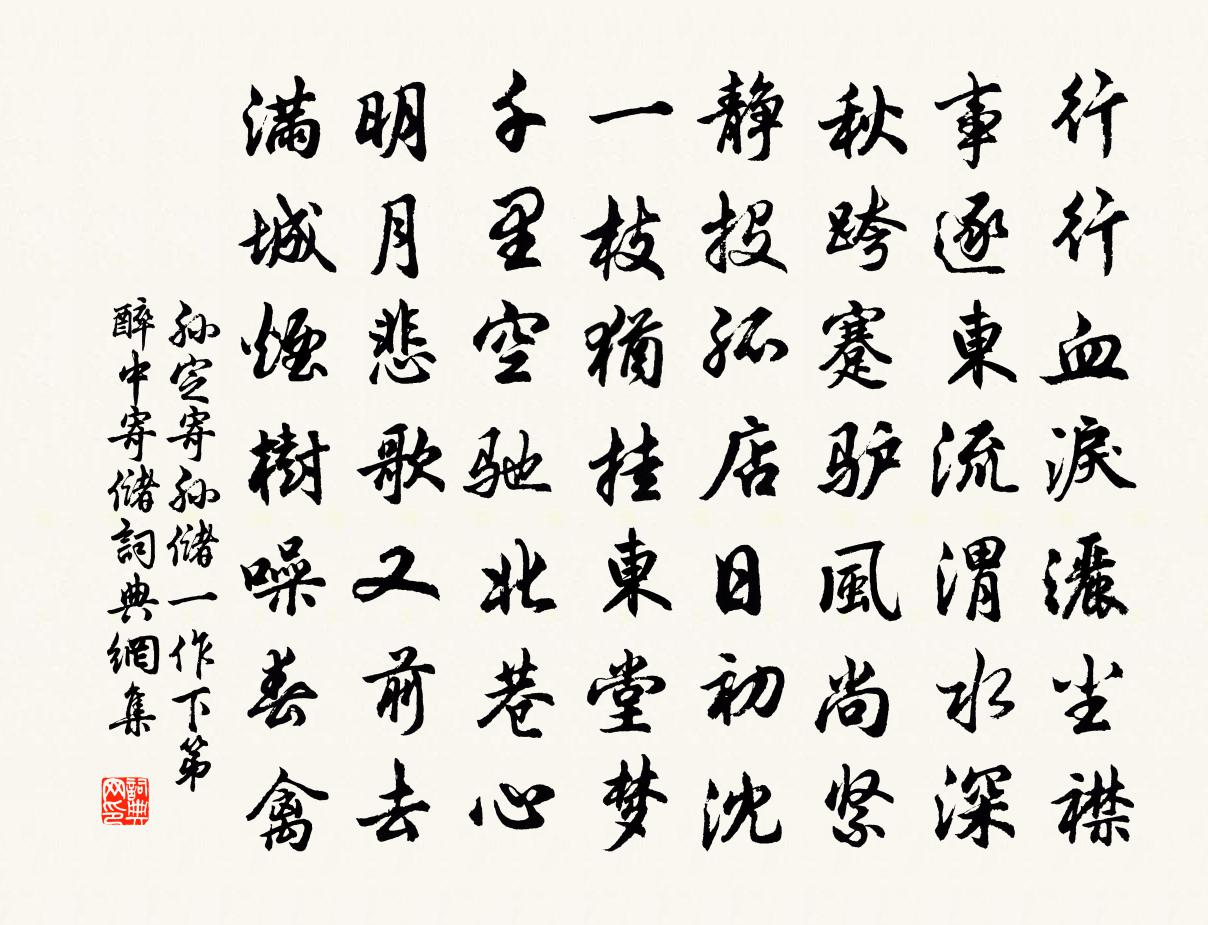 行行血淚灑尘襟
事逐東流渭水深
秋跨蹇驴風尚紧
静投孤店日初沈
一枝猶挂東堂梦
千里空驰北巷心
明月悲歌又前去
满城煙樹噪春禽
孙定寄孙儲一作下第
醉中寄儲詞典網集
詞典
网印